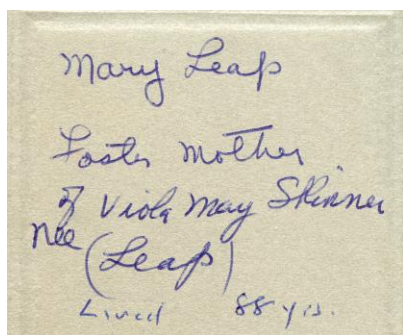 Mary Leap
Foster Mother
of Viola May Skinner
nee
(Leap)
Lived 88 yrs.